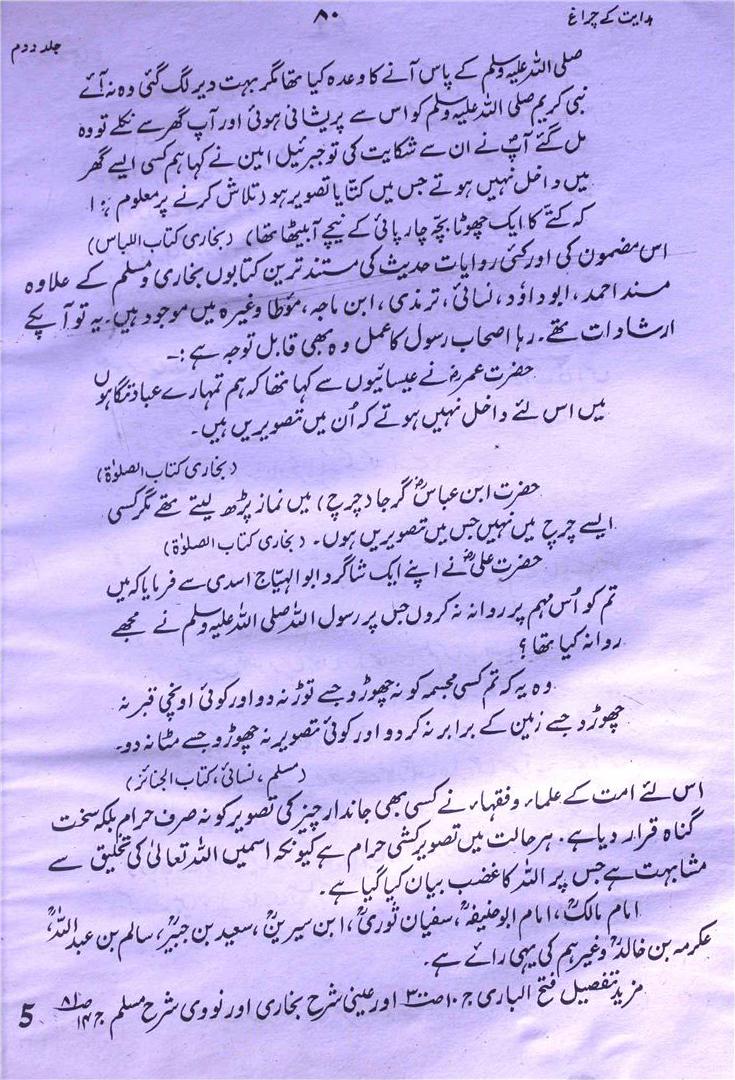 ہدایت کے چراغ
۸۰
جلد دوم
صلی اللہ علیہ وسلم کے پاس آنے کا وعدہ کیا تھا مگر بہت دیر لگ گئی وہ نہ آئے
نبی کریم صلی اللہ علیہ وسلم کو اس سے پریشانی ہوئی اور آپ گھر سے نکلے تو وہ
مل گئے آپؐ نے ان سے شکایت کی تو جبرئیل امین نے کہا ہم کسی ایسے گھر
میں داخل نہیں ہوتے جس میں کتّا یا تصویر ہو (تلاش کرنے پر معلوم ہوا
کہ کتّے کا ایک چھوٹا بچہ چارپائی کے نیچے آبیٹھا تھا) (بخاری کتاب اللباس)
اس مضمون کی اور کئی روایات حدیث کی مستند ترین کتابوں بخاری و مسلم کے علاوہ
مسند احمد، ابوداؤد، نسائی، ترمذی، ابن ماجہ، مؤطا وغیرہ میں موجود ہیں۔ یہ تو آپکے
ارشادات تھے۔ رہا اصحاب رسول کا عمل وہ بھی قابل توجہ ہے :۔
حضرت عمرؓ نے عیسائیوں سے کہا تھا کہ ہم تمہارے عبادتگاہوں
میں اس لئے داخل نہیں ہوتے کہ اُن میں تصویریں ہیں۔
(بخاری کتاب الصلوٰۃ)
حضرت ابن عباسؓ گرجا (چرچ) میں نماز پڑھ لیتے تھے مگر کسی
ایسے چرچ میں نہیں جس میں تصویریں ہوں۔ (بخاری کتاب الصلوٰۃ)
حضرت علیؓ نے اپنے ایک شاگرد ابوالہیّاج اسدی سے فرمایا کہ میں
تم کو اُس مہم پر روانہ نہ کروں جس پر رسول اللہ صلی اللہ علیہ وسلم نے مجھے
روانہ کیا تھا ؟
وہ یہ کہ تم کسی مجسمہ کو نہ چھوڑو جسے توڑ نہ دو اور کوئی اونچی قبر نہ
چھوڑو جسے زمین کے برابر نہ کر دو اور کوئی تصویر نہ چھوڑو جسے مٹا نہ دو۔
(مسلم، نسائی، کتاب الجنائز)
اس لئے امت کے علماء و فقہاء نے کسی بھی جاندار چیز کی تصویر کو نہ صرف حرام بلکہ سخت
گناہ قرار دیا ہے۔ ہر حالت میں تصویر کشی حرام ہے کیونکہ اسمیں اللہ تعالیٰ کی تخلیق سے
مشابہت ہے جس پر اللہ کا غضب بیان کیا گیا ہے۔
امام مالکؒ، امام ابوحنیفہؒ، سفیان ثوریؒ، ابن سیرینؒ، سعید بن جبیرؒ، سالم بن عبداللہؒ،
عکرمہ بن خالدؒ وغیرہم کی یہی رائے ہے۔
مزید تفصیل فتح الباری ج ۱۰ ص ۳۰۰ اور عینی شرح بخاری اور نووی شرح مسلم ج ۱۴ ص ۸۱
5